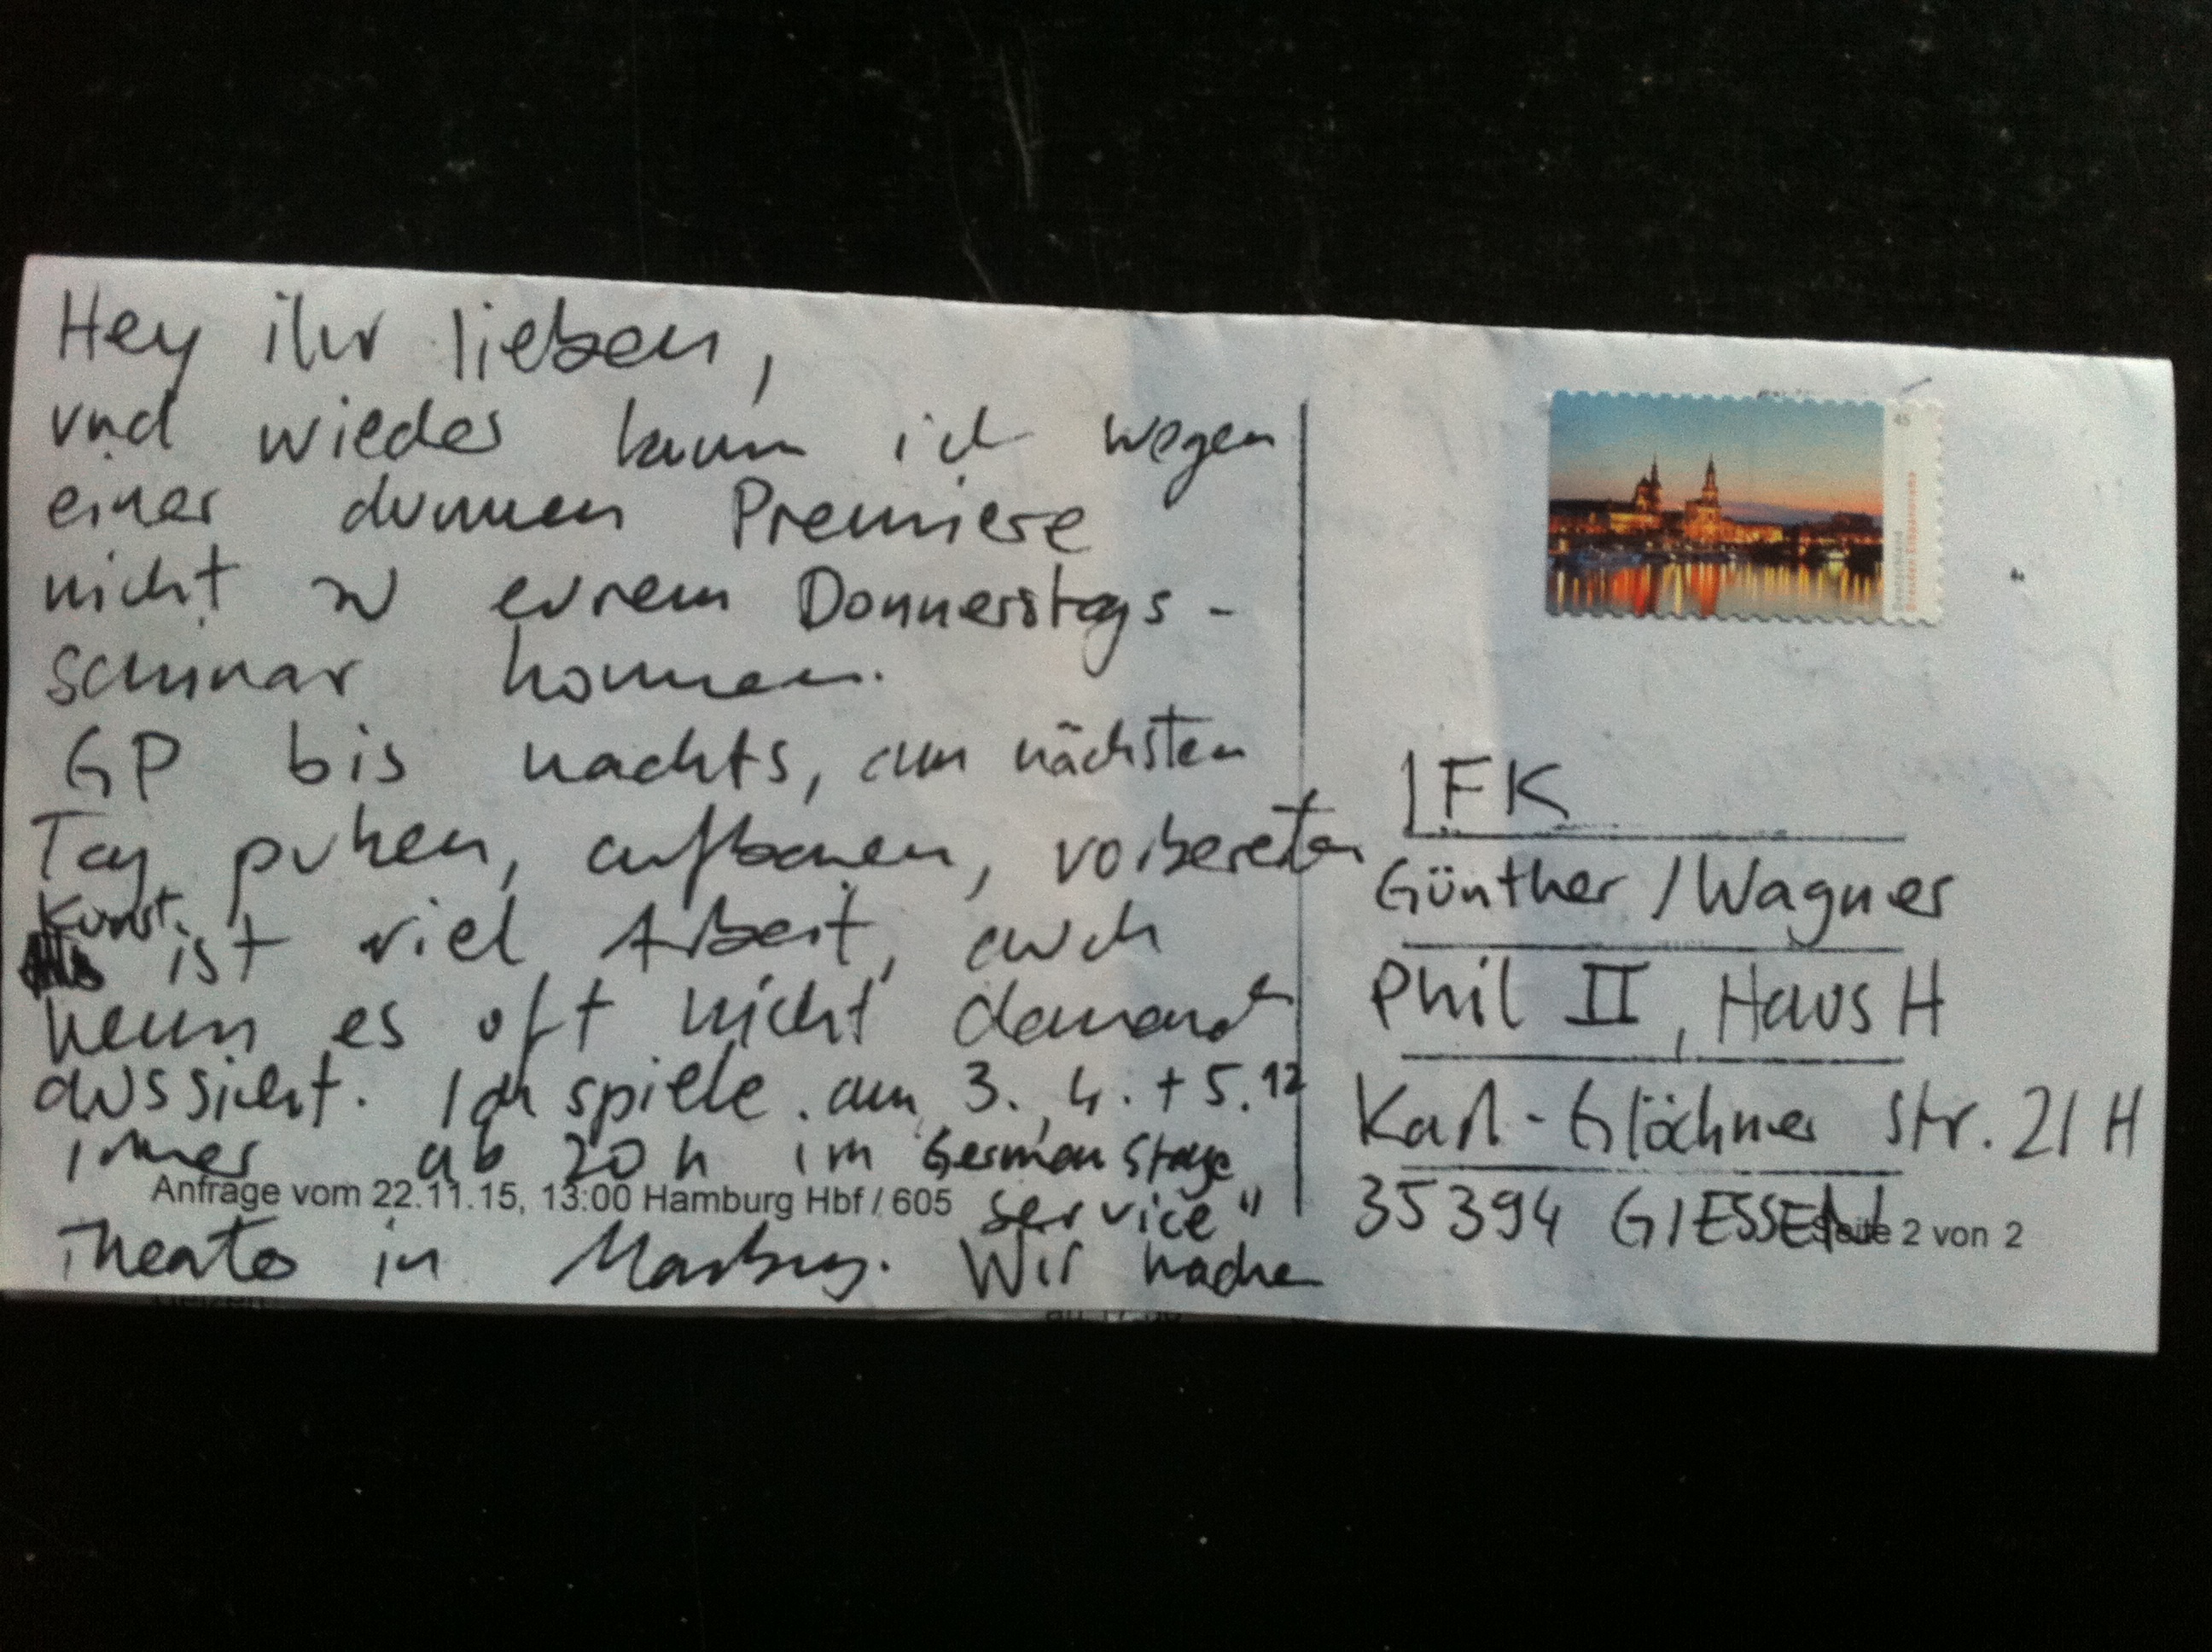 Hey ihr lieben,
und wieder kann ich wegen
einer dummen Premiere
nicht zu eurem Donnerstags-
seminar kommen.
GP bis nachts, am nächsten
Tag putzen, aufbauen, vorbereiten
Kunst
ist viel Arbeit, auch
wenn es oft nicht danach
aussieht. Ich spiele am 3., 4. + 5.12
immer ab 20 h im German Stage
Anfrage vom 22.11.15, 13:00 Hamburg Hbf / 605
Service"
Theater in Marburg. Wir machen
45
Deutschland
Dresdner Elbpanorama
IFK
Günther / Wagner
Phil II, Haus H
Karl-Glöckner Str. 21 H
35394 GIESSEN
Seite 2 von 2